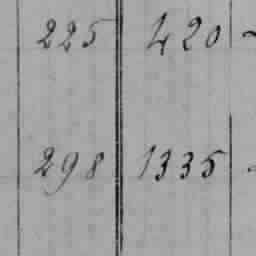 225 420
298 1335